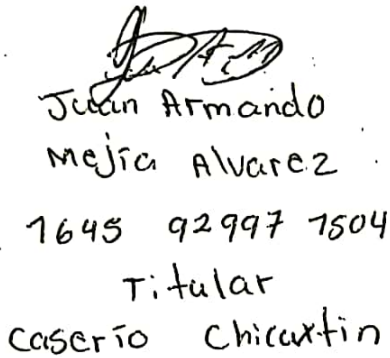 Juan Armando
Mejía Alvarez
1645 92997 1504
Titular
Caserío Chicaxtin